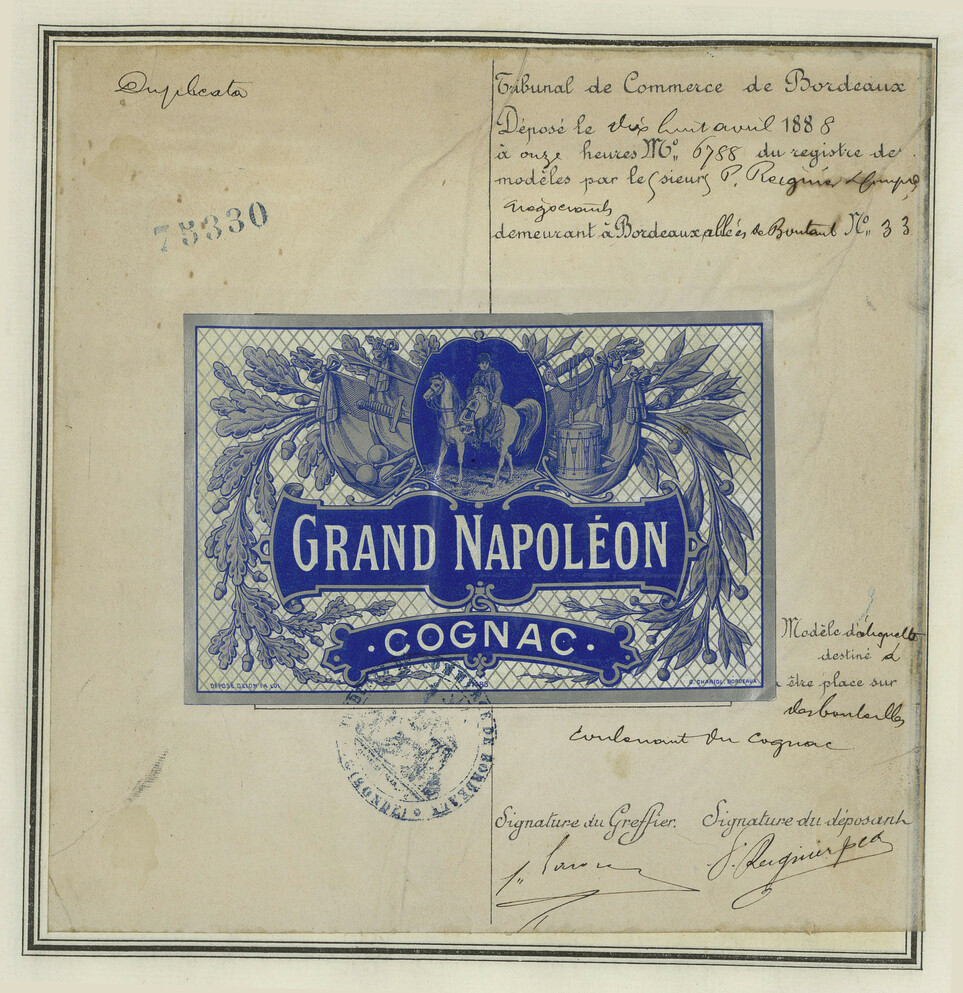 Duplicata
Tribunal de Commerce de Bordeaux
Déposé le dix huit avril 1888
à onze heures No. 6788 du registre de
modèles par le(sieurs P. Regnier & Comp.
négociants
demeurant à Bordeaux allées de Boutaut No. 33
75330
GRAND NAPOLÉON
· COGNAC ·
DÉPOSÉ SELON LA LOI
BORDEAUX
Modèle d'étiquette
destiné à
être place sur
des bouteilles
contenant du cognac
DE BORDEAUX
(GIRONDE)
Signature du Greffier.
Signature du déposant